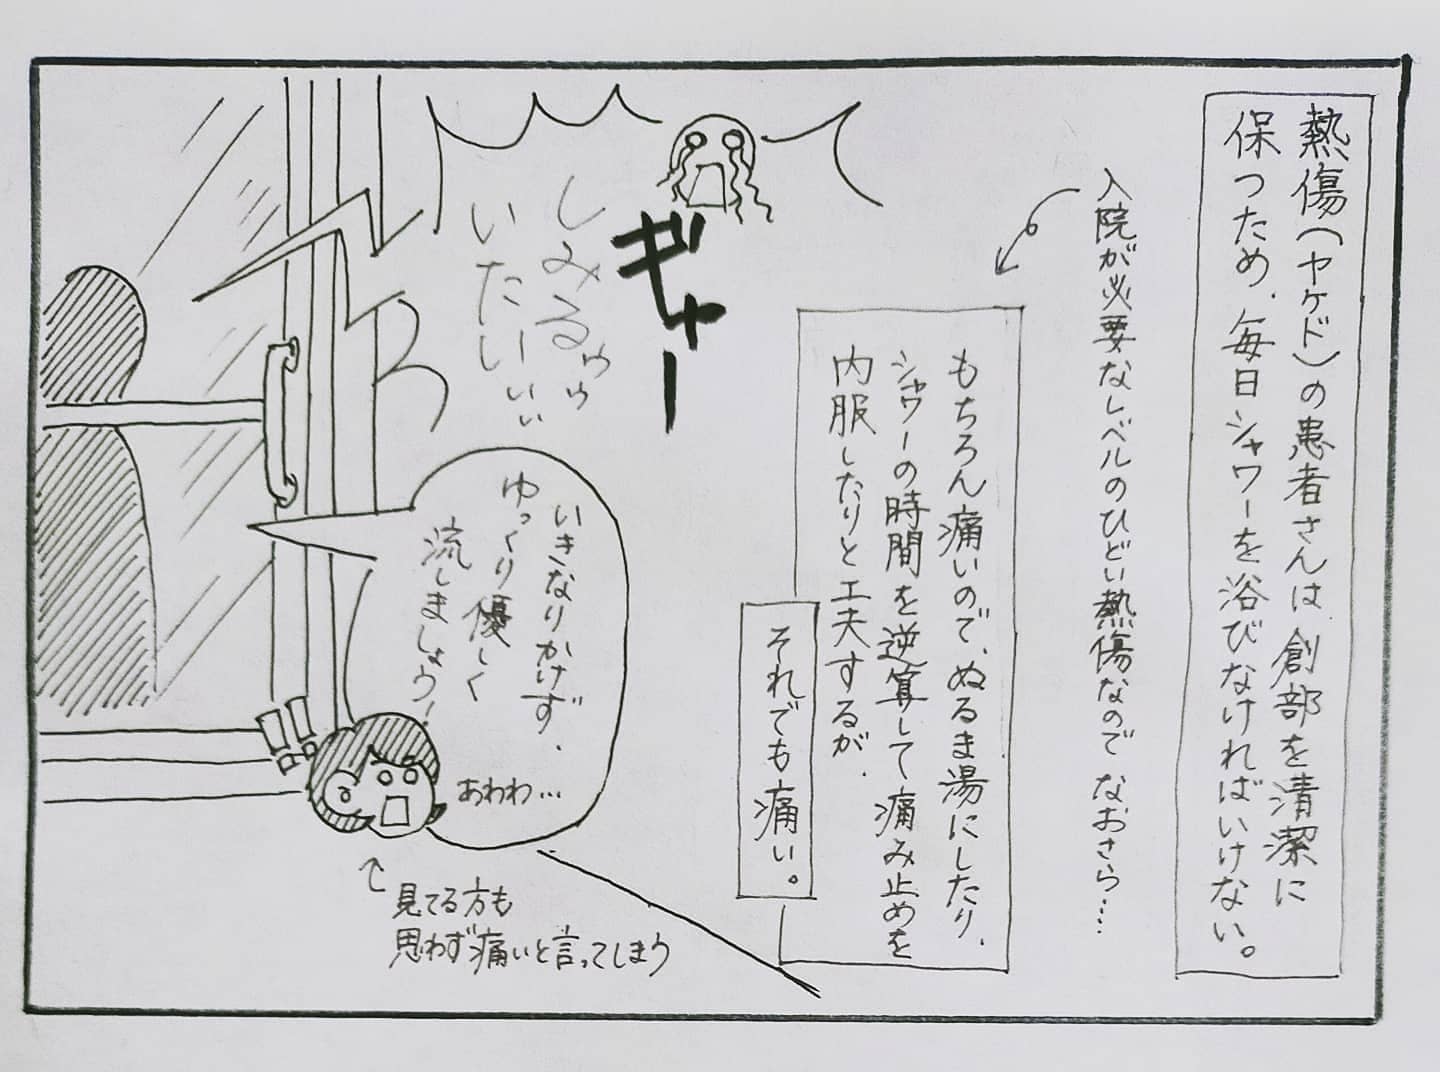 熱傷(ヤケド)の患者さんは、創部を清潔に
保つため、毎日シャワーを浴びなければいけない。
入院が必要なレベルのひどい熱傷なので なおさら…
もちろん痛いので、ぬるま湯にしたり、
シャワーの時間を逆算して痛み止めを
内服したりと工夫するが、
それでも痛い。
ギャー
しみるぅぅぅ
いたーいぃぃ
いきなりかけず、
ゆっくり優しく
流しましょう!
あわわ…
見てる方も
思わず痛いと言ってしまう